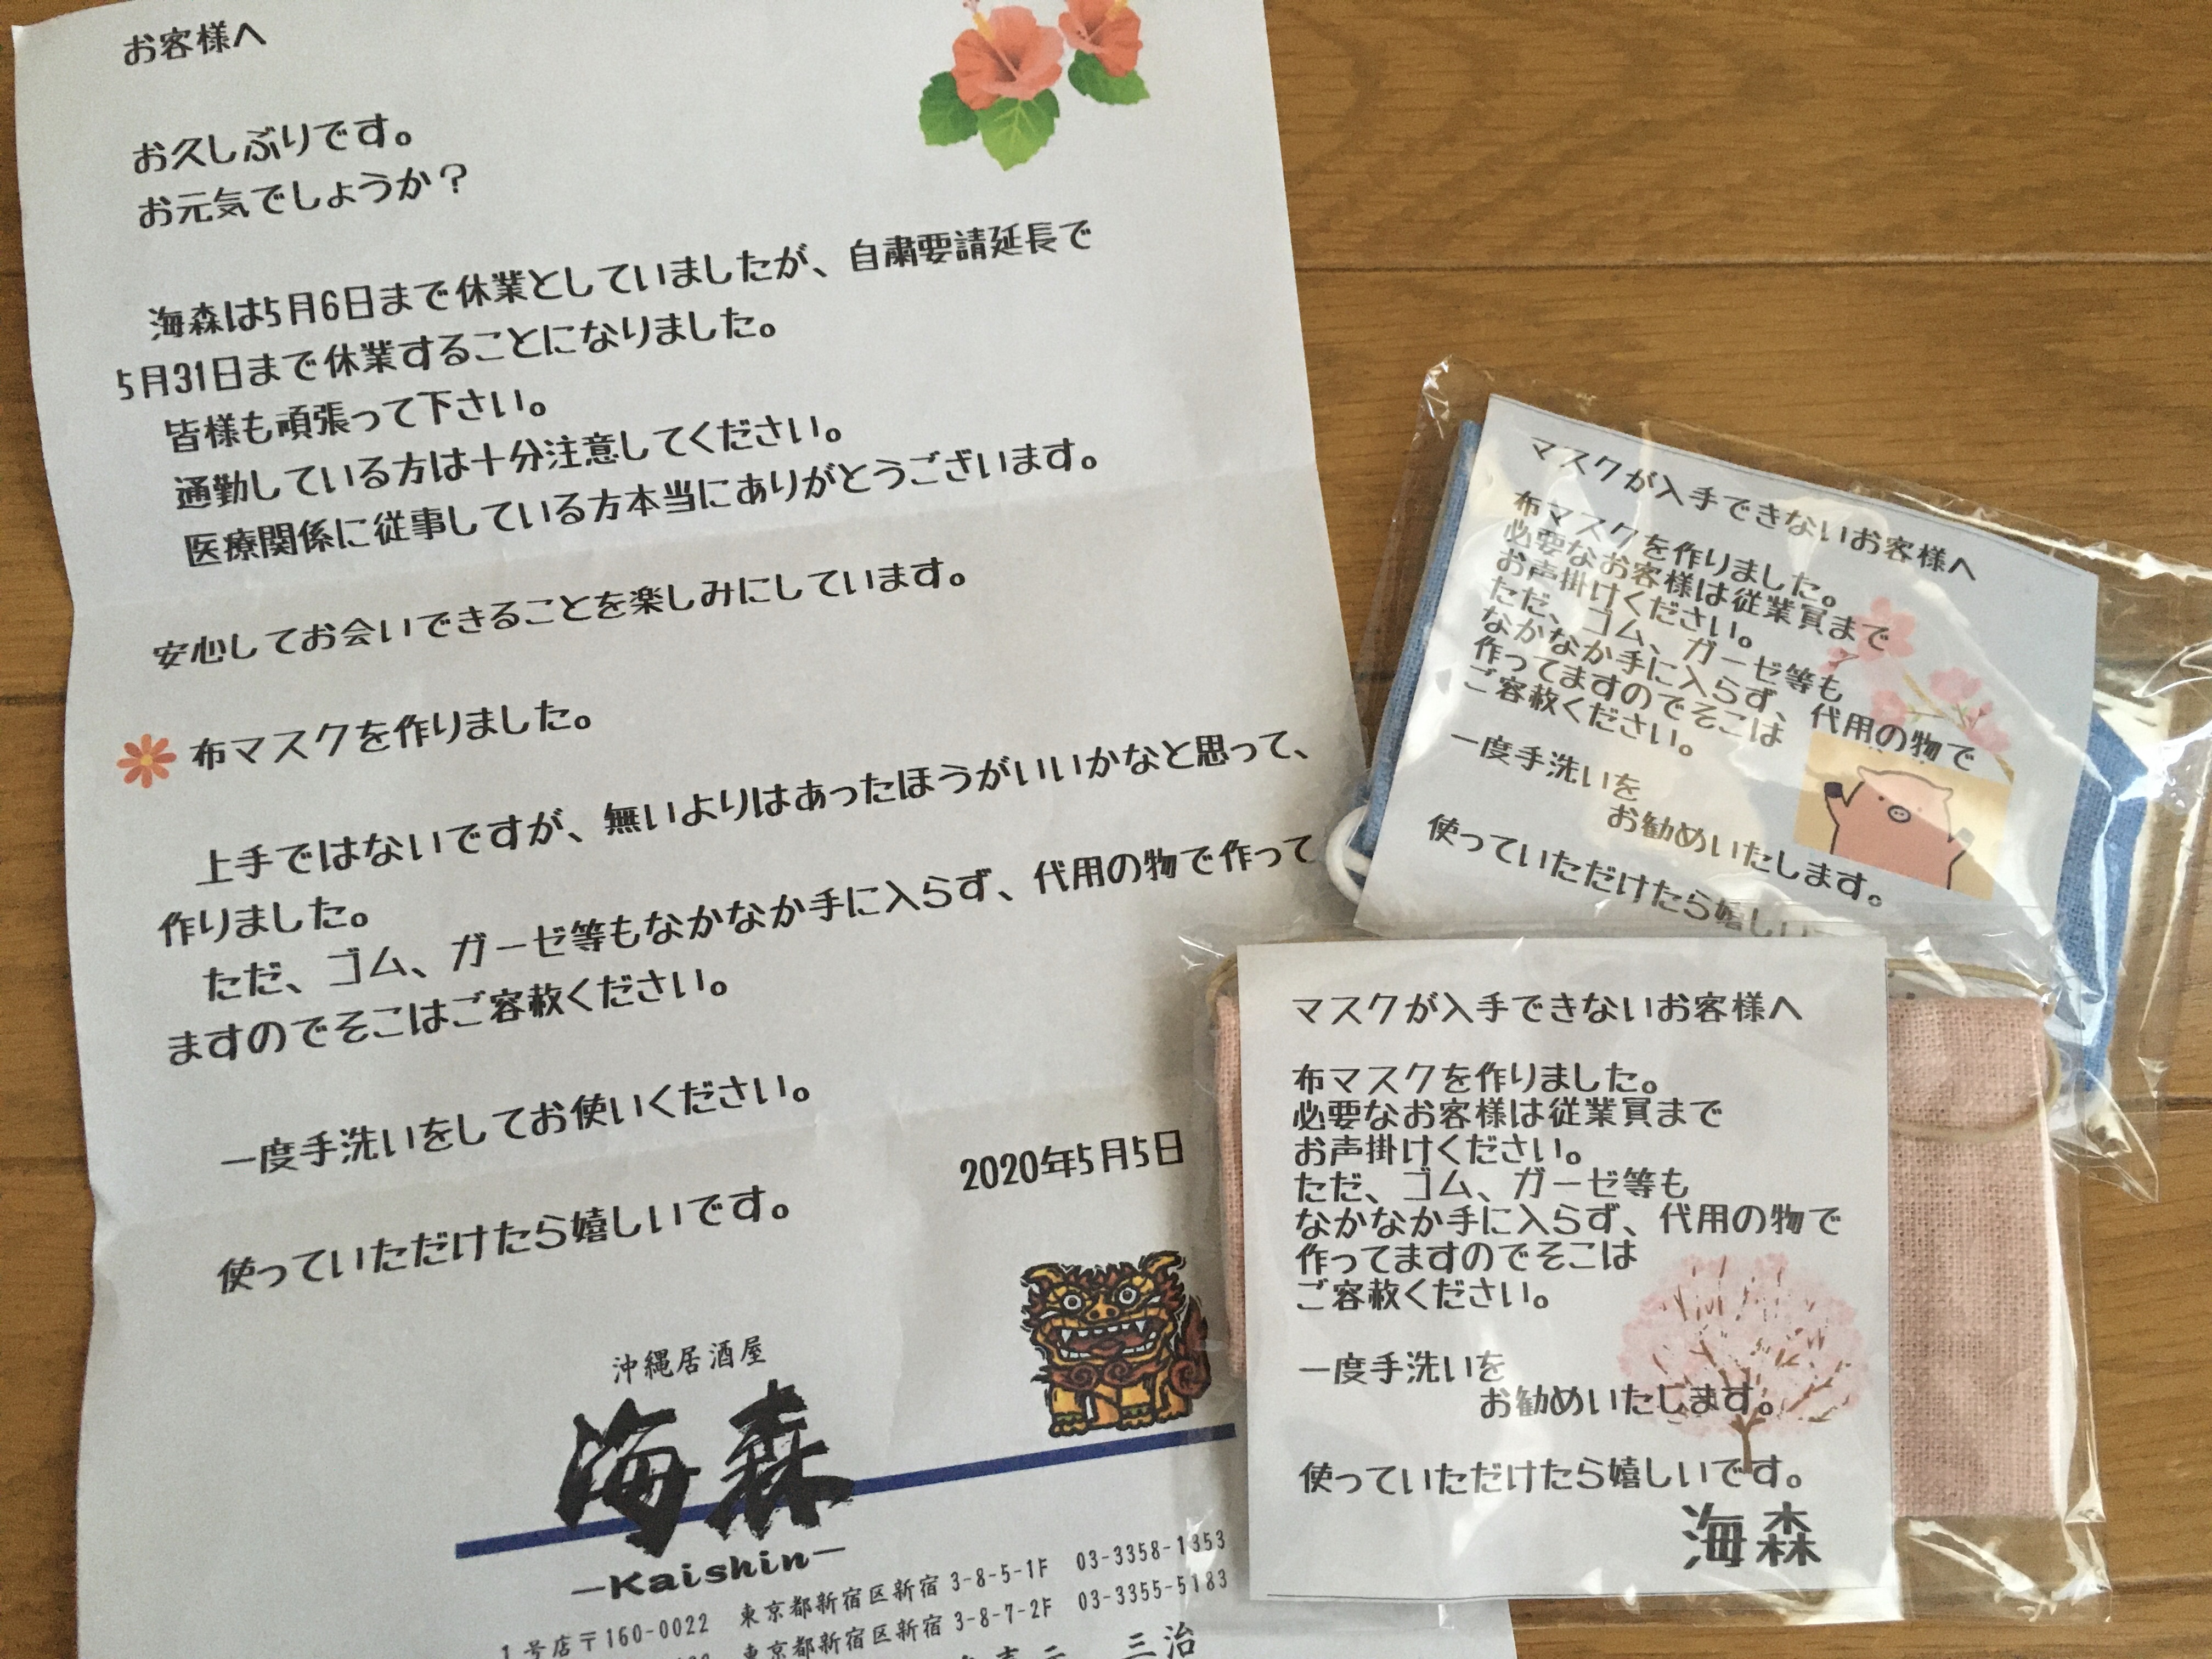 お客様へ
お久しぶりです。
お元気でしょうか？
海森は5月6日まで休業としていましたが、自粛要請延長で
5月31日まで休業することになりました。
皆様も頑張って下さい。
通勤している方は十分注意してください。
医療関係に従事している方本当にありがとうございます。
安心してお会いできることを楽しみにしています。
布マスクを作りました。
上手ではないですが、無いよりはあったほうがいいかなと思って、
作りました。
ただ、ゴム、ガーゼ等もなかなか手に入らず、代用の物で作って
ますのでそこはご容赦ください。
一度手洗いをしてお使いください。
2020年5月5日
使っていただけたら嬉しいです。
沖縄居酒屋
海森
—Kaishin—
1号店〒160-0022 東京都新宿区新宿 3-8-5-1F 03-3358-1353
東京都新宿区新宿 3-8-7-2F 03-3355-5183
三治
マスクが入手できないお客様へ
布マスクを作りました。
必要なお客様は従業員まで
お声掛けください。
ただ、ゴム、ガーゼ等も
なかなか手に入らず、代用の物で
作ってますのでそこは
ご容赦ください。
一度手洗いを
お勧めいたします。
使っていただけたら嬉しい
マスクが入手できないお客様へ
布マスクを作りました。
必要なお客様は従業員まで
お声掛けください。
ただ、ゴム、ガーゼ等も
なかなか手に入らず、代用の物で
作ってますのでそこは
ご容赦ください。
一度手洗いを
お勧めいたします。
使っていただけたら嬉しいです。
海森